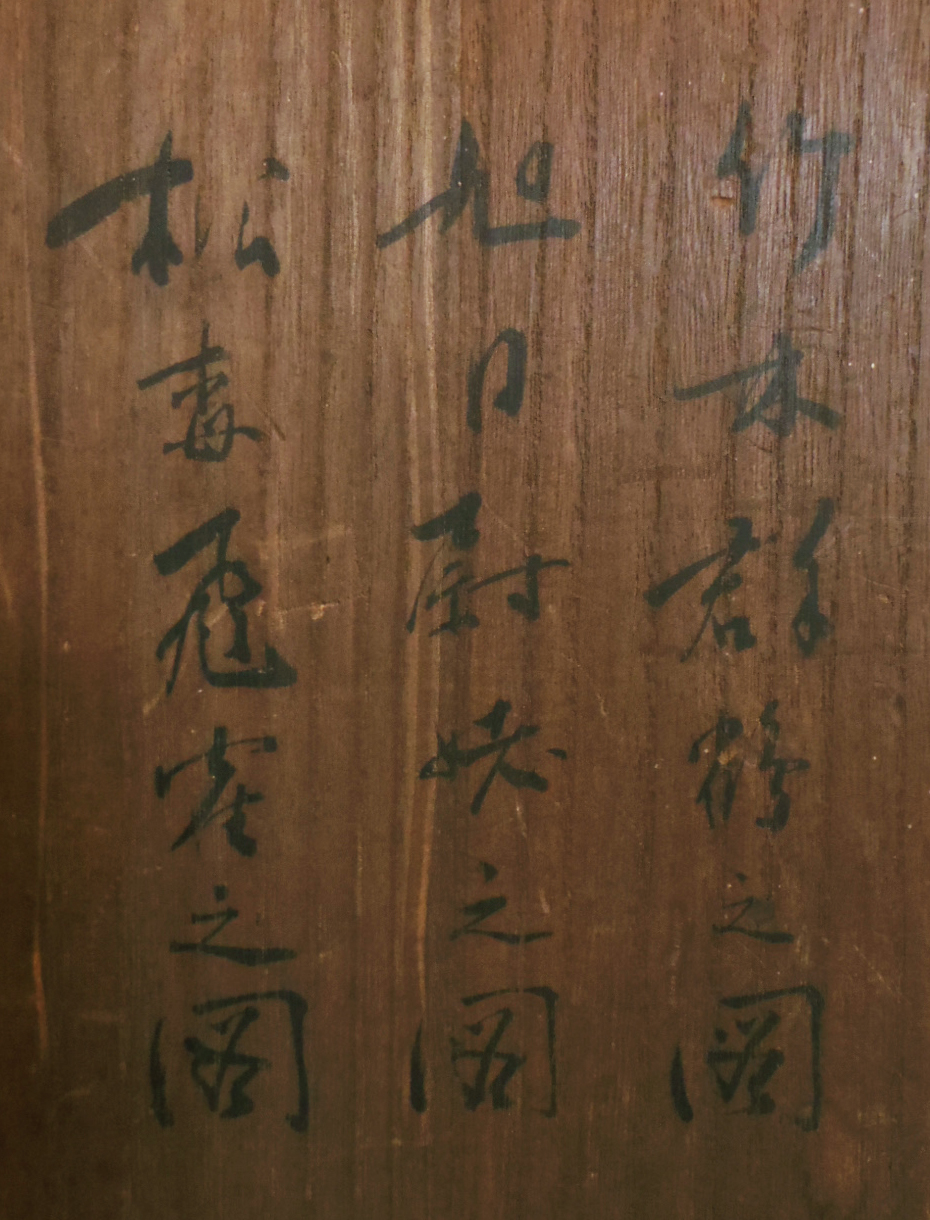 竹林群鶴之圖
旭日尉姥之圖
松飛寉之圖